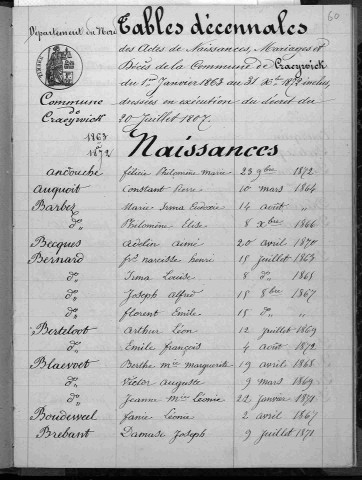 60
Département du Nord
Tables décennales
des Actes de Naissances, Mariages et
Décès de la Commune de Craeywick
du 1er Janvier 1863 au 31 Xbre 1872 inclus,
dressées en exécution du décret du
20 Juillet 1807.
Commune
de
Craeywick
1863
1872
Naissances
Andouche félicie Philomène marie 23 9bre 1872
Auquoit Constant Pierre 10 mars 1864
Barbez Marie Irma Eudoxie 14 août "
do Philomène Elise 8 Xbre 1866
Becques Adolin aimé 20 avril 1870
Bernard fois narcisse henri 15 juillet 1863
do Irma Louise 8 do 1865
do Joseph alfred 15 8bre 1867
do florent Emile 15 do "
Berteloot Arthur Léon 12 juillet 1869
do Emile françois 4 août 1872
Blaevoet Berthe mie marguerite 19 avril 1868
do Victor auguste 9 mars 1869
do Jeanne mie Léonie 22 janvier 1871
Boudeweel fanie Léonie 2 avril 1867
Brebant Damase Joseph 9 juillet 1871